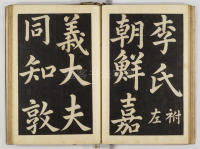 李氏祔左
朝鮮嘉
義大夫
同知敦